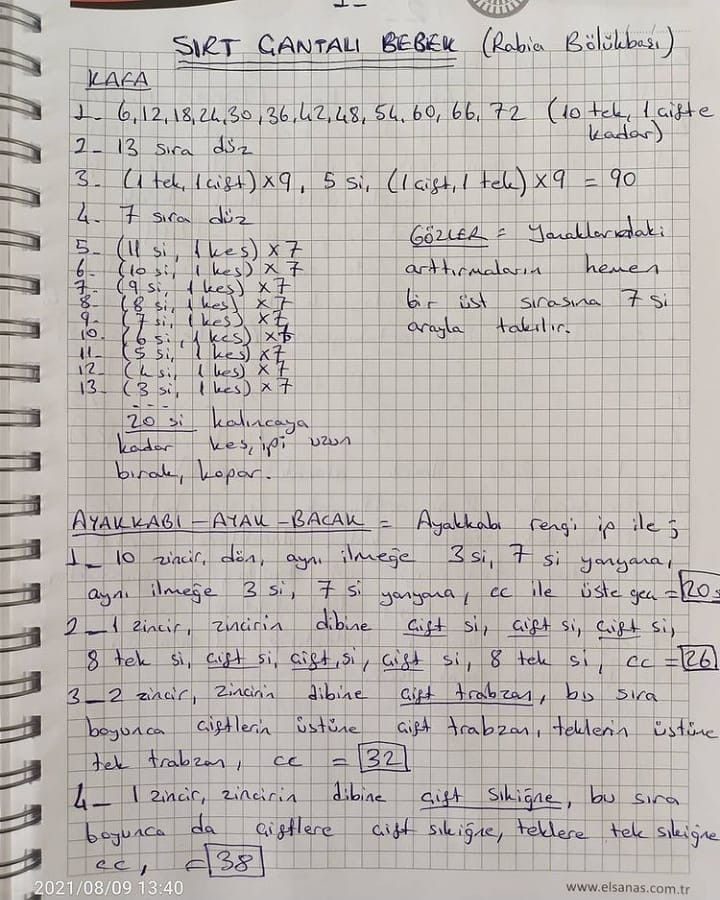 SIRT ÇANTALI BEBEK (Rabia Bölükbaşı)
KAFA
1- 6,12,18,24,30,36,42,48,54,60,66,72 (10 tek, 1 çifte kadar)
2- 13 sıra düz
3- (1 tek, 1 çift) x 9, 5 si, (1 çift, 1 tek) x 9 = 90
4- 7 sıra düz
5- (11 si, 1 kes) x 7
6- (10 si, 1 kes) x 7
7- (9 si, 1 kes) x 7
8- (8 si, 1 kes) x 7
9- (7 si, 1 kes) x 7
10. (6 si, 1 kes) x
11- (5 si, 1 kes) x 7
12- (4 si, 1 kes) x 7
13- (3 si, 1 kes) x 7
20 si kalıncaya
kadar kes, ipi uzun
bırak, kopar.
GÖZLER = Yanaklarındaki
arttırmaların hemen
bir üst sırasına 7 si
arayla takılır.
AYAKKABI - AYAK - BACAK = Ayakkabı rengi ip ile;
1- 10 zincir, dön, aynı ilmeğe 3 si, 7 si yanyana,
aynı ilmeğe 3 si, 7 si yanyana, cc ile üste geç = 20s
2- 1 zincir, zncirin dibine çift si, çift si, çift si,
8 tek si, çift si, çift, si, çift si, 8 tek si, cc = 26
3- 2 zincir, zincirin dibine çift trabzan, bu sıra
boyunca çiftlerin üstüne çift trabzan, teklerin üstüne
tek trabzan, cc = 32
4- 1 zincir, zincirin dibine çift sıkiğne, bu sıra
boyunca da çiftlere çift sıkiğne, teklere tek sıkiğne
cc, = 38
2021/08/09 13:40
www.elsanas.com.tr